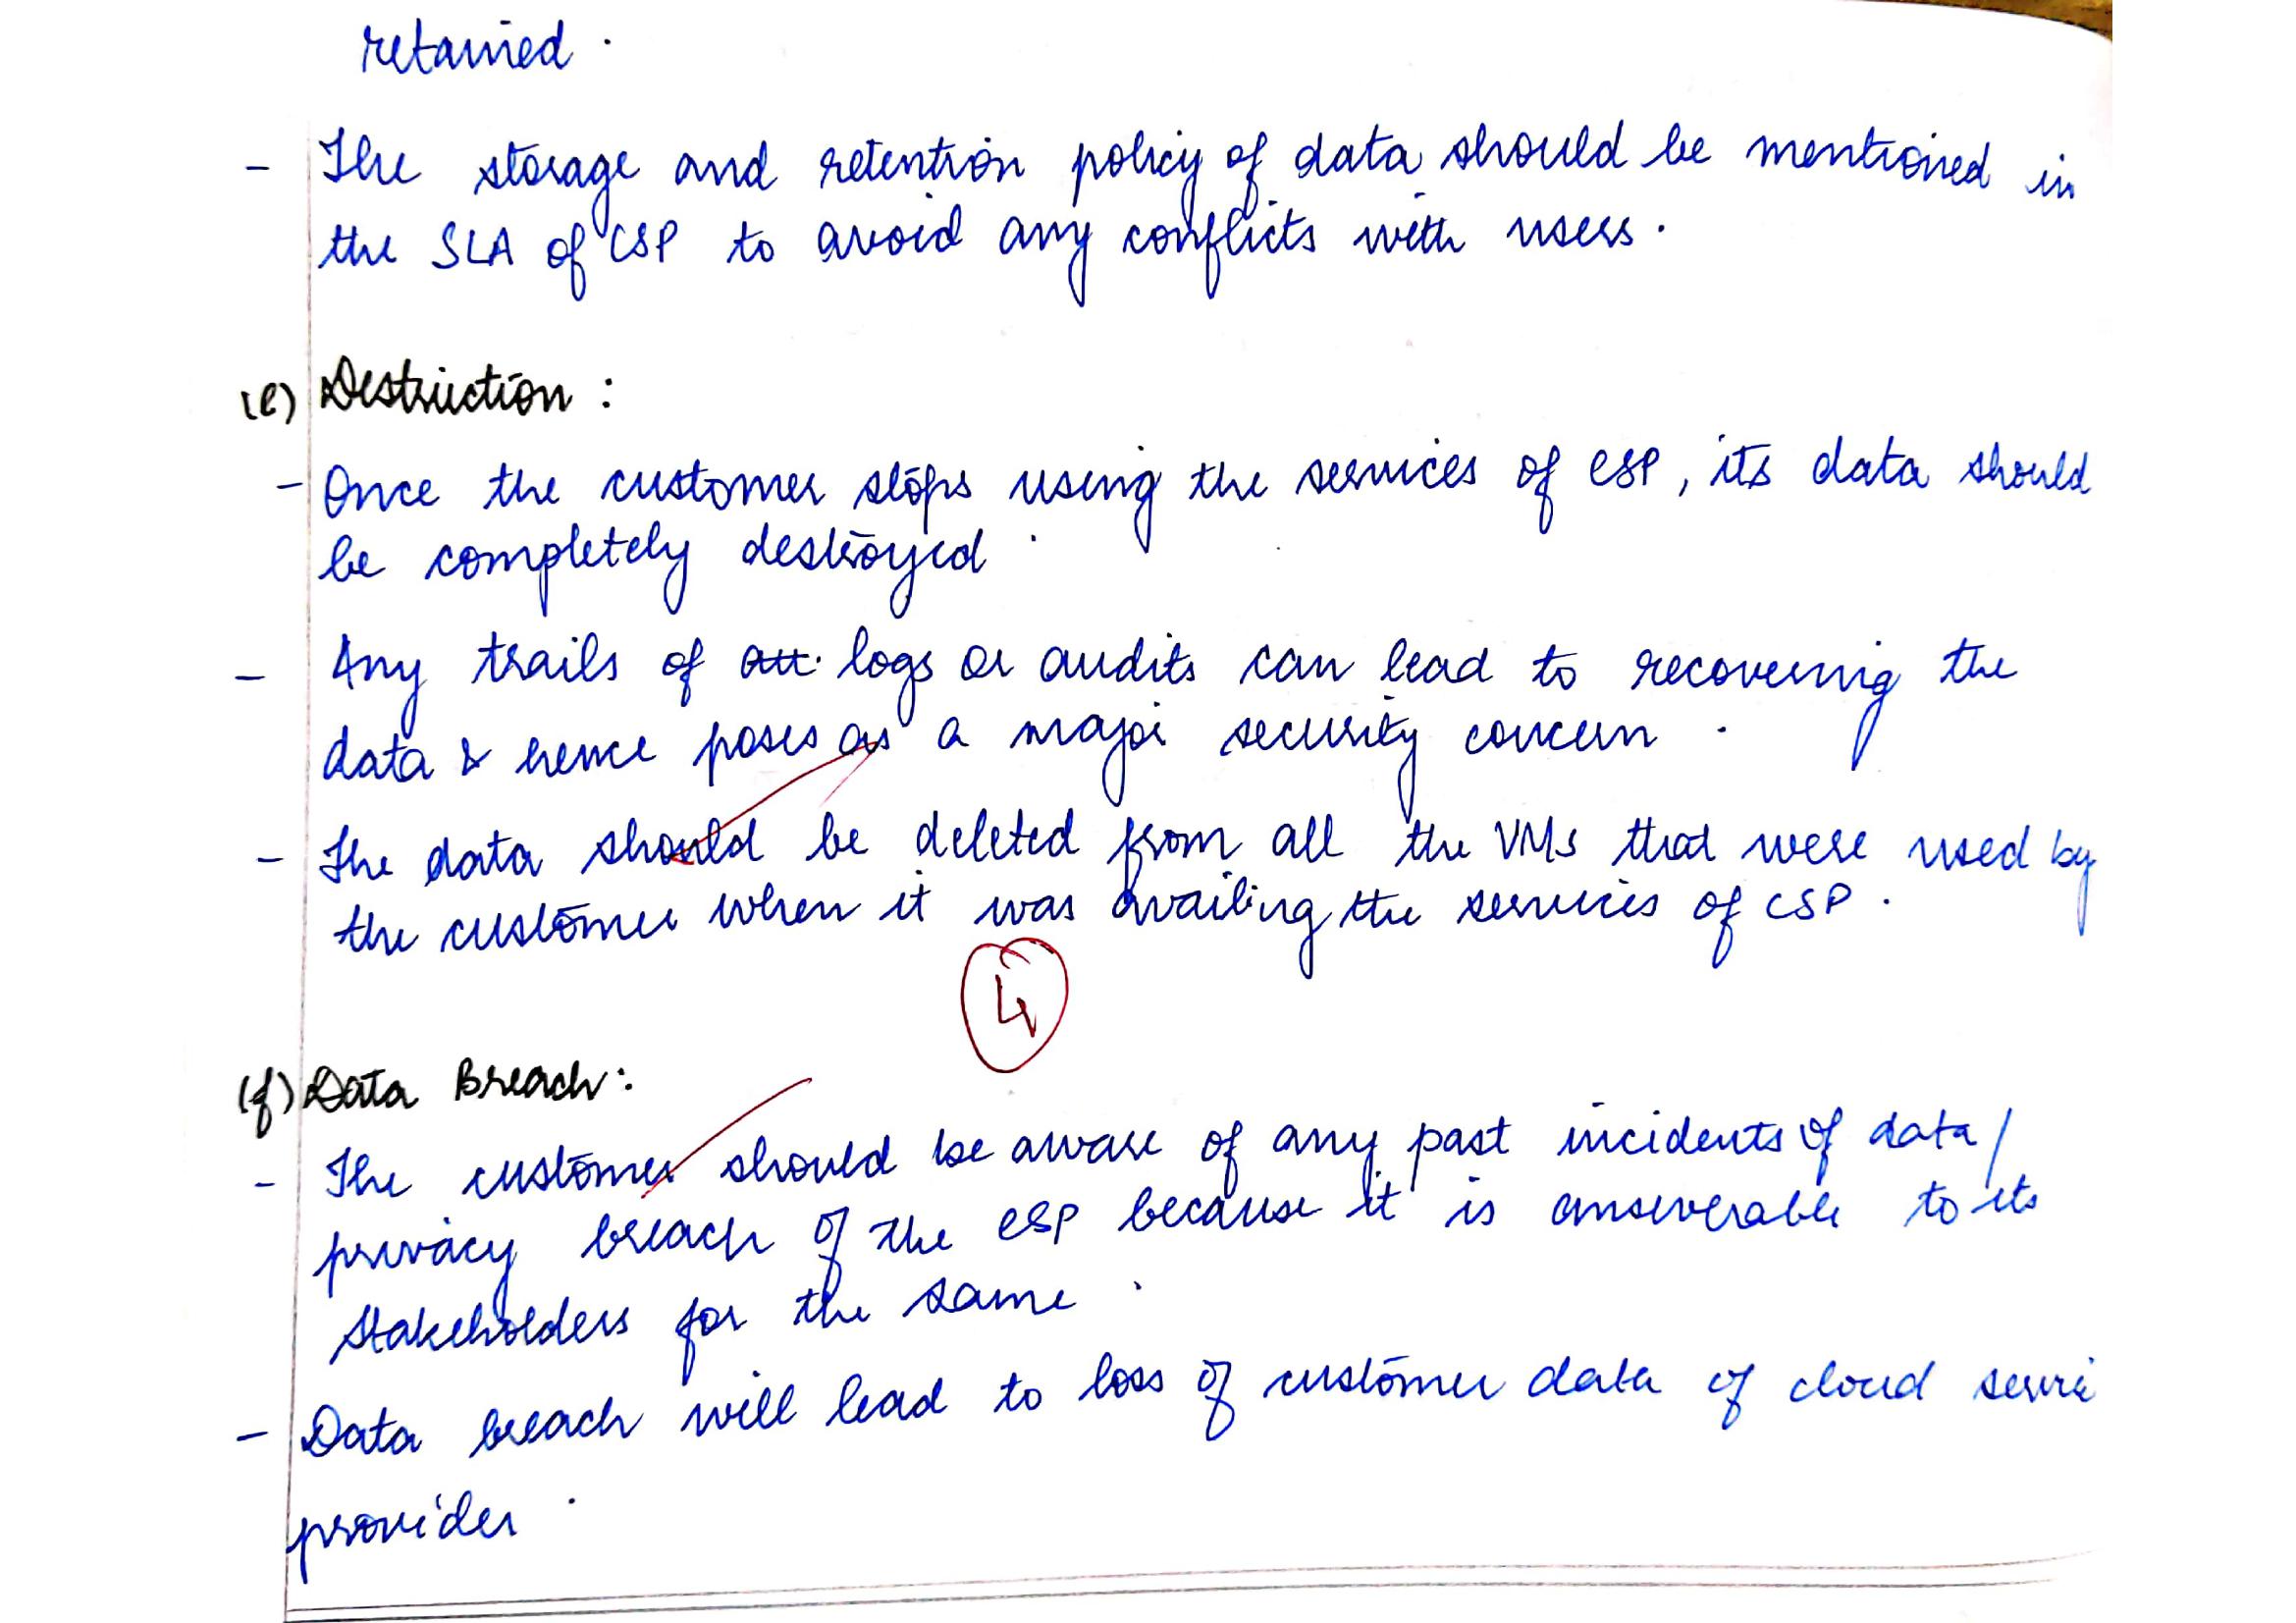 retained.
- The storage and retention policy of data should be mentioned in
the SLA of CSP to avoid any conflicts with users.
(e) Destruction :
- Once the customer stops using the services of CSP, its data should
be completely destroyed.
- Any trails of logs or audits can lead to recovering the
data & hence poses as a major security concern.
- The data should be deleted from all the VMs that were used by
the customer when it was availing the services of CSP.
4
(f) Data Breach :
- The customer should be aware of any past incidents of data/
privacy breach of the CSP because it is answerable to its
stakeholders for the same.
- Data breach will lead to loss of customer data of cloud servi
provider.